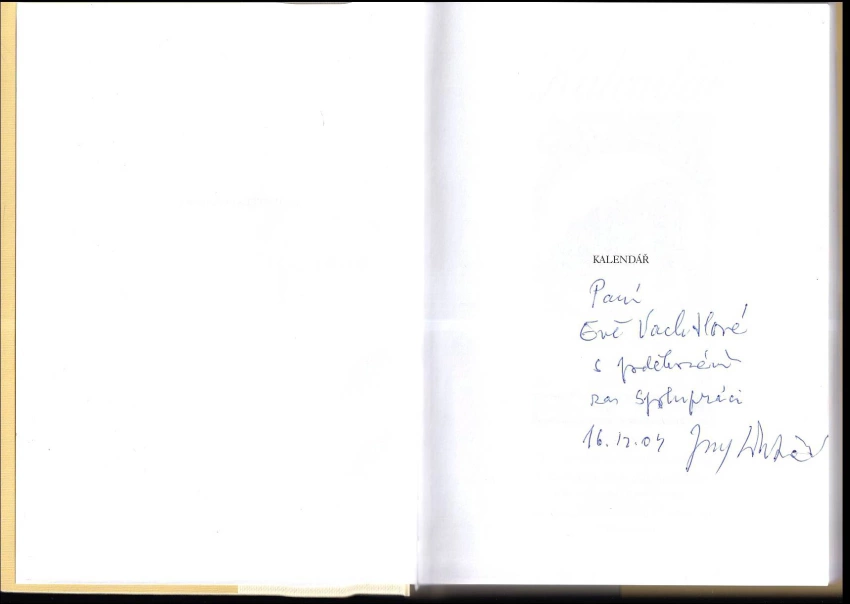 KALENDÁŘ
Paní
Evě Vachtlové
s poděkováním
za spolupráci
16.12.04